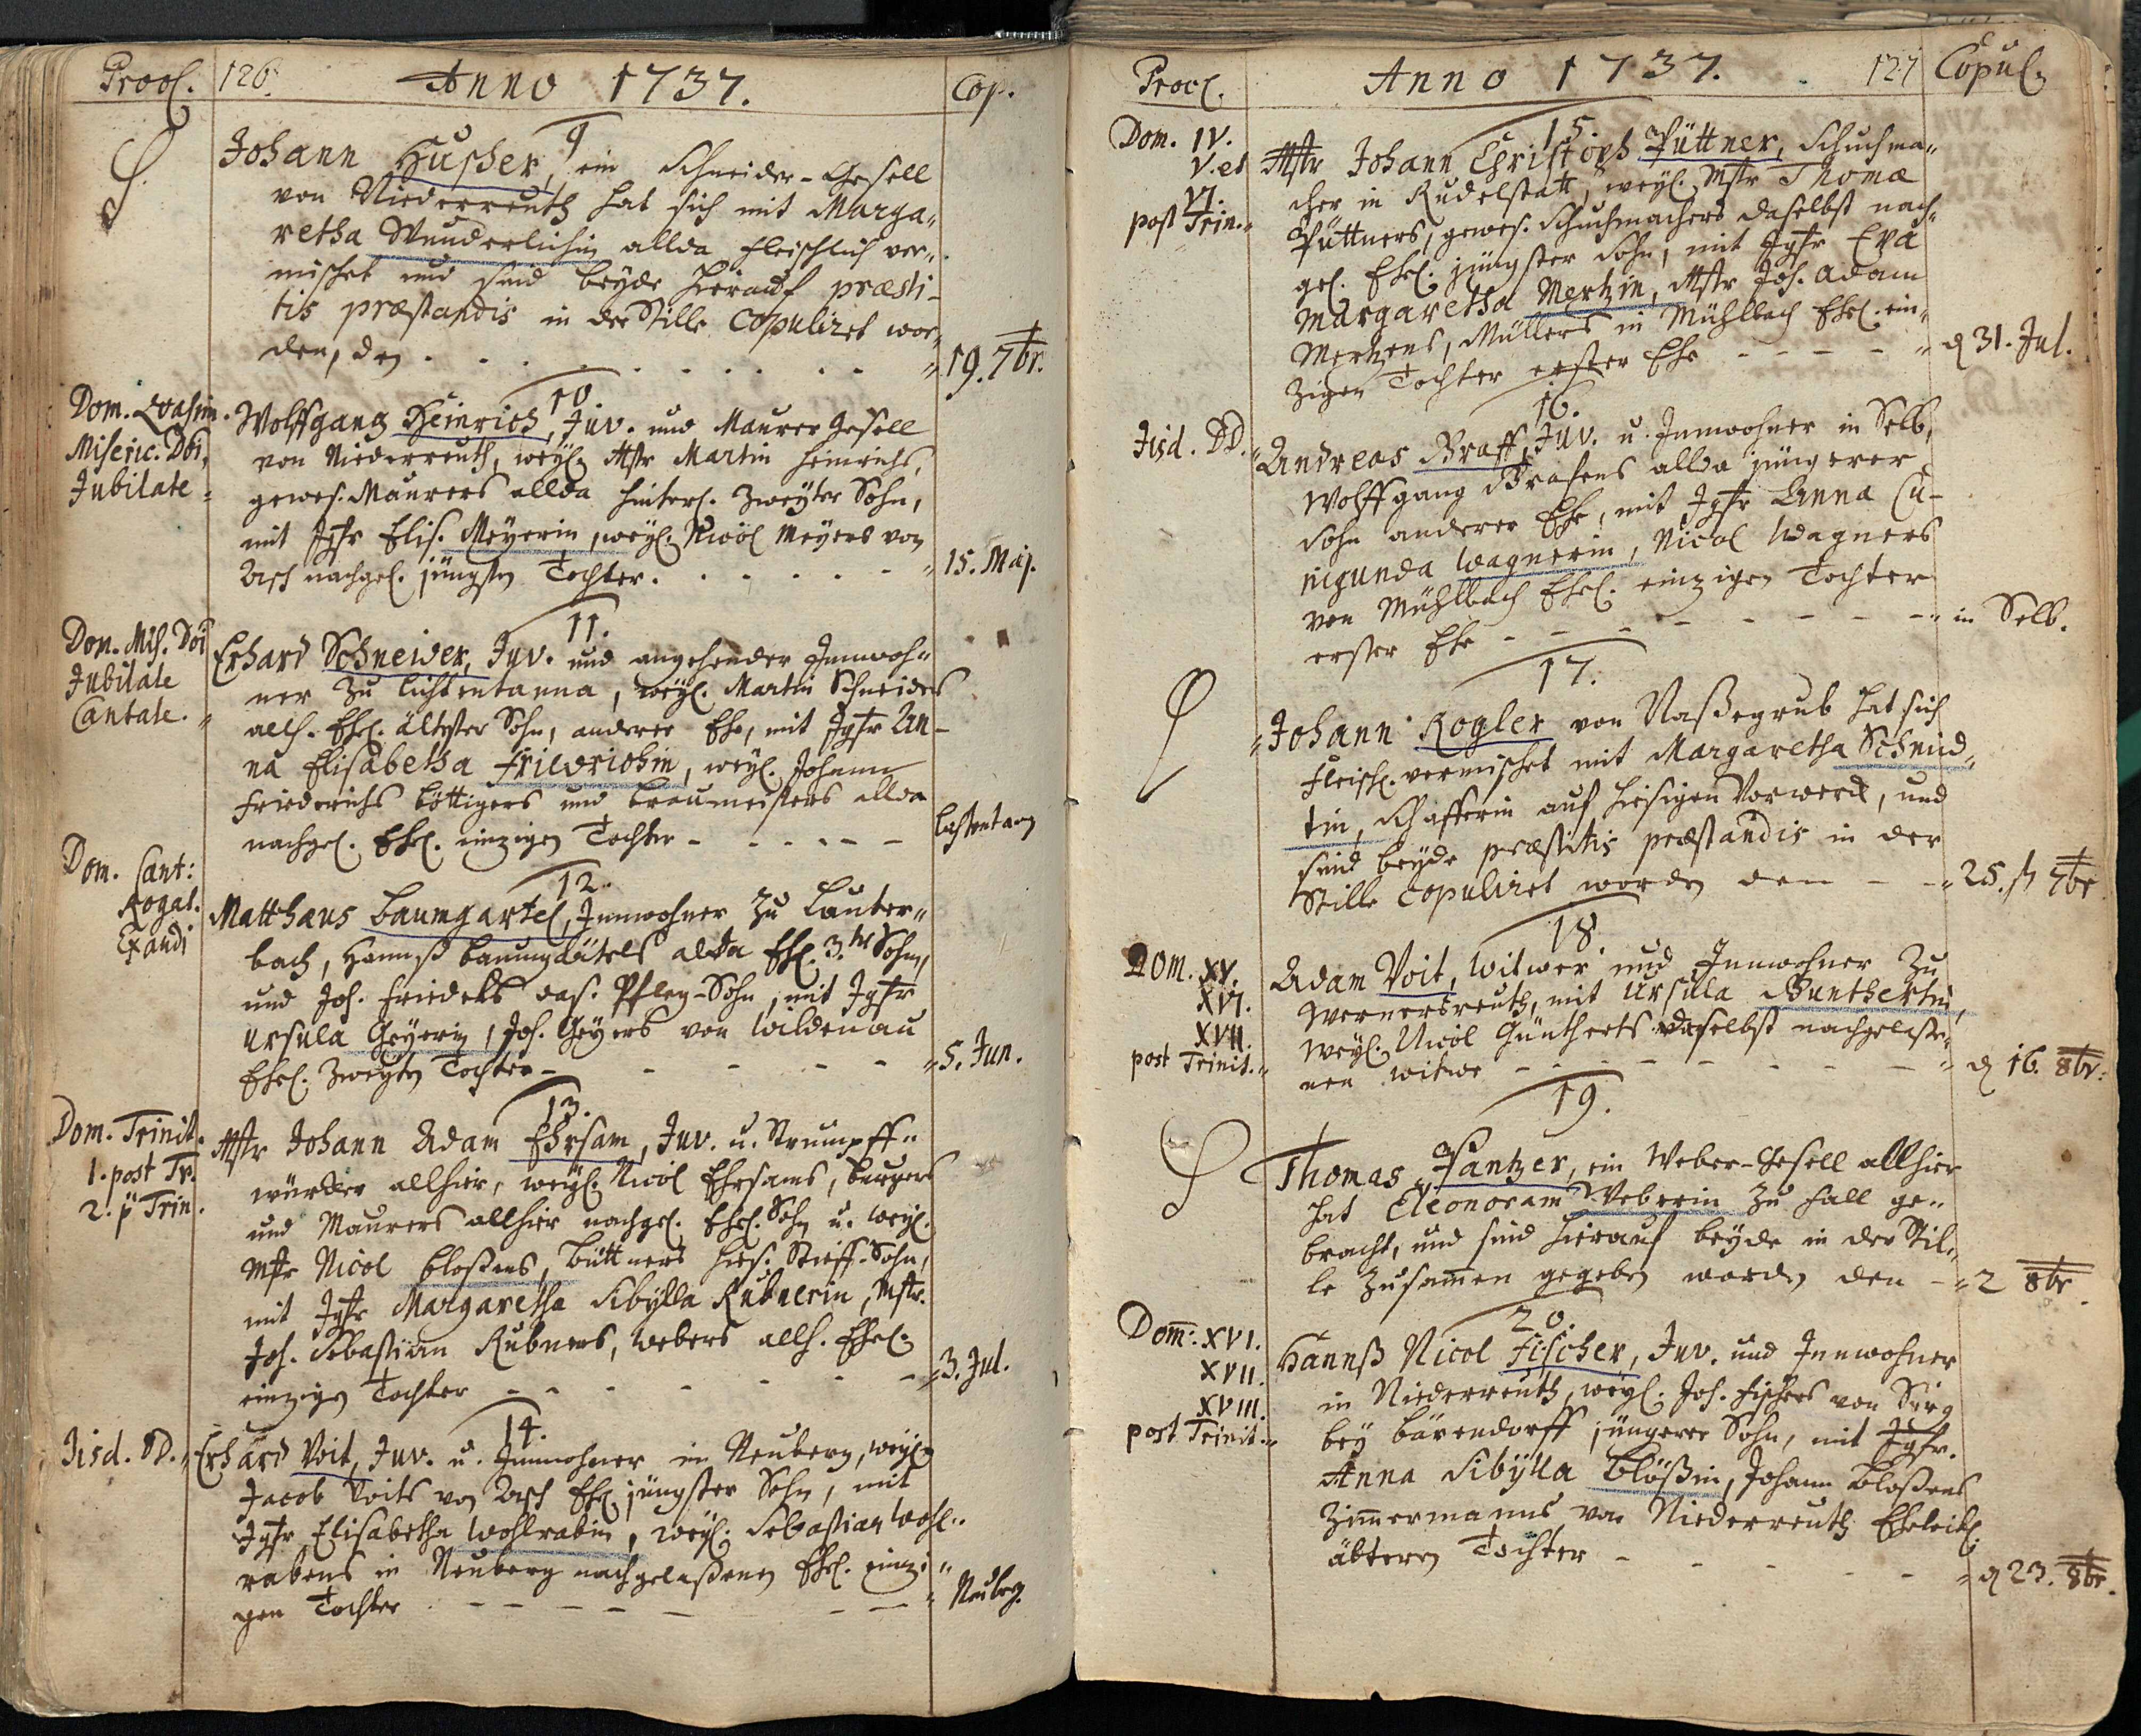 Procl. 126. Anno 1737. Cop.
9
Johann Hußher, ein Schneider-Gesell
von Niederreuth hat sich mit Marga-
retha Wunderlichin allda fleischlich ver-
mischet und sind beyde hierauf præsti-
tis præstandis in der Stille copuliret wor-
den, den 19. 7br.
10.
Dom. Quasim.
Miseric. Dni,
Jubilate
Wolffgang Heinrich, Juv. und Maurer Gesell
von Niederreuth, weyl. Mstr Martin Heinrichs,
gewes. Maurers allda hinterl. zweyter Sohn,
mit Jgfr Elis. Meyerin, weyl. Nicol Meyers von
Asch nachgel. jüngsten Tochter. 15. Maj.
11.
Dom. Mis. Dni
Jubilate
Cantate.
Erhard Schneider, Juv. und angehender Innwoh-
ner zu Lichtentanna, weyl. Martin Schneiders
allh. Ehel. ältester Sohn, anderer Ehe, mit Jgfr An-
na Elisabetha Friedrichin, weyl. Johann
Friederichs Böttigers und Braumeisters allda
nachgel. Ehel. einzigen Tochter Lichtentann
12.
Dom. Cant:
Rogat.
Exaudi
Matthæus Baumgartel, Innwohner zu Lauter-
bach, Hannß Baumgärtels allda Ehel. 3.ter Sohn,
und Joh. Friedels das. Pfleg-Sohn, mit Jgfr
Ursula Geyerin, Joh. Geyers von Wildenau
Ehel. zweyten Tochter 5. Jun.
13.
Dom. Trinit.
1. post Tr.
2. p Trin.
Mstr Johann Adam Ehrsam, Juv. u. Strumpff-
würcker allhier, weyl. Nicol Ehrsams, Burgers
und Maurers allhier nachgel. Ehel. Sohn u. weyl.
Mstr Nicol Bloßens, Büttners hies. Stieff-Sohn,
mit Jgfr Margaretha Sibylla Rubnerin, Mstr.
Joh. Sebastian Rubners, Webers allh. Ehel.
einzigen Tochter 3. Jul.
14.
Iisd. DD.
Erhard Voit, Juv. u. Innwohner in Neuberg, weyl.
Jacob Voits von Asch Ehel. jüngster Sohn, mit
Jgfr Elisabetha Wohlrabin, weyl. Sebastian Wohl-
rabens in Neuberg nachgelaßenen Ehel. einzi-
gen Tochter Neuberg.
Procl. Anno 1737. 127 Copul.
15.
Dom. IV.
V. et
VI.
post Trin.
Mstr Johann Christoph Püttner, Schuchma-
cher in Rudelstatt, weyl. Mstr Thomæ
Püttners, gewes. Schuchmachers daselbst nach-
gel. Ehel. jüngster Sohn, mit Jgfr Eva
Margaretha Mertzin, Mstr Joh. Adam
Mertzens, Müllers in Mühlbach Ehel. ein-
zigen Tochter erster Ehe d. 31. Jul.
16.
Iisd. DD.
Andreas Graff, Juv. u. Innwohner in Selb,
Wolffgang Grafens allda jüngerer
Sohn anderer Ehe, mit Jgfr Anna Cu-
nigunda Wagnerin, Nicol Wagners
von Mühlbach Ehel. einzigen Tochter
erster Ehe in Selb.
17.
Johann Kogler von Naßegrub hat sich
fleischl. vermischet mit Margaretha Schmid-
tin, Schafferin auf hiesigen Vorwerck, und
sind beyde præstitis præstandis in der
Stille copuliret worden den 25. 7br
18.
Dom. XV.
XVI.
XVII.
post Trinit.
Adam Voit, Witwer und Innwohner zu
Wernersreuth, mit Ursula Gunthertin,
weyl. Nicol Güntherts daselbst nachgelaße-
nen Witwe d. 16. 8br.
19.
Thomas Pantzer, ein Weber-Gesell allhier
hat Eleonoram Weberin zu Fall ge-
bracht, und sind hierauf beyde in der Stil-
le zusammen gegeben worden den 2 8br.
20.
Dom. XVI.
XVII.
XVIII.
post Trinit.
Hannß Nicol Fischer, Juv. und Innwohner
in Niederreuth, weyl. Joh. Fischers von Sorg
bey Bärendorff jüngerer Sohn, mit Jgfr.
Anna Sibylla Blößin, Johann Bloßens
Zimmermanns von Niederreuth Eheleibl.
ältern Tochter d. 23. 8br.